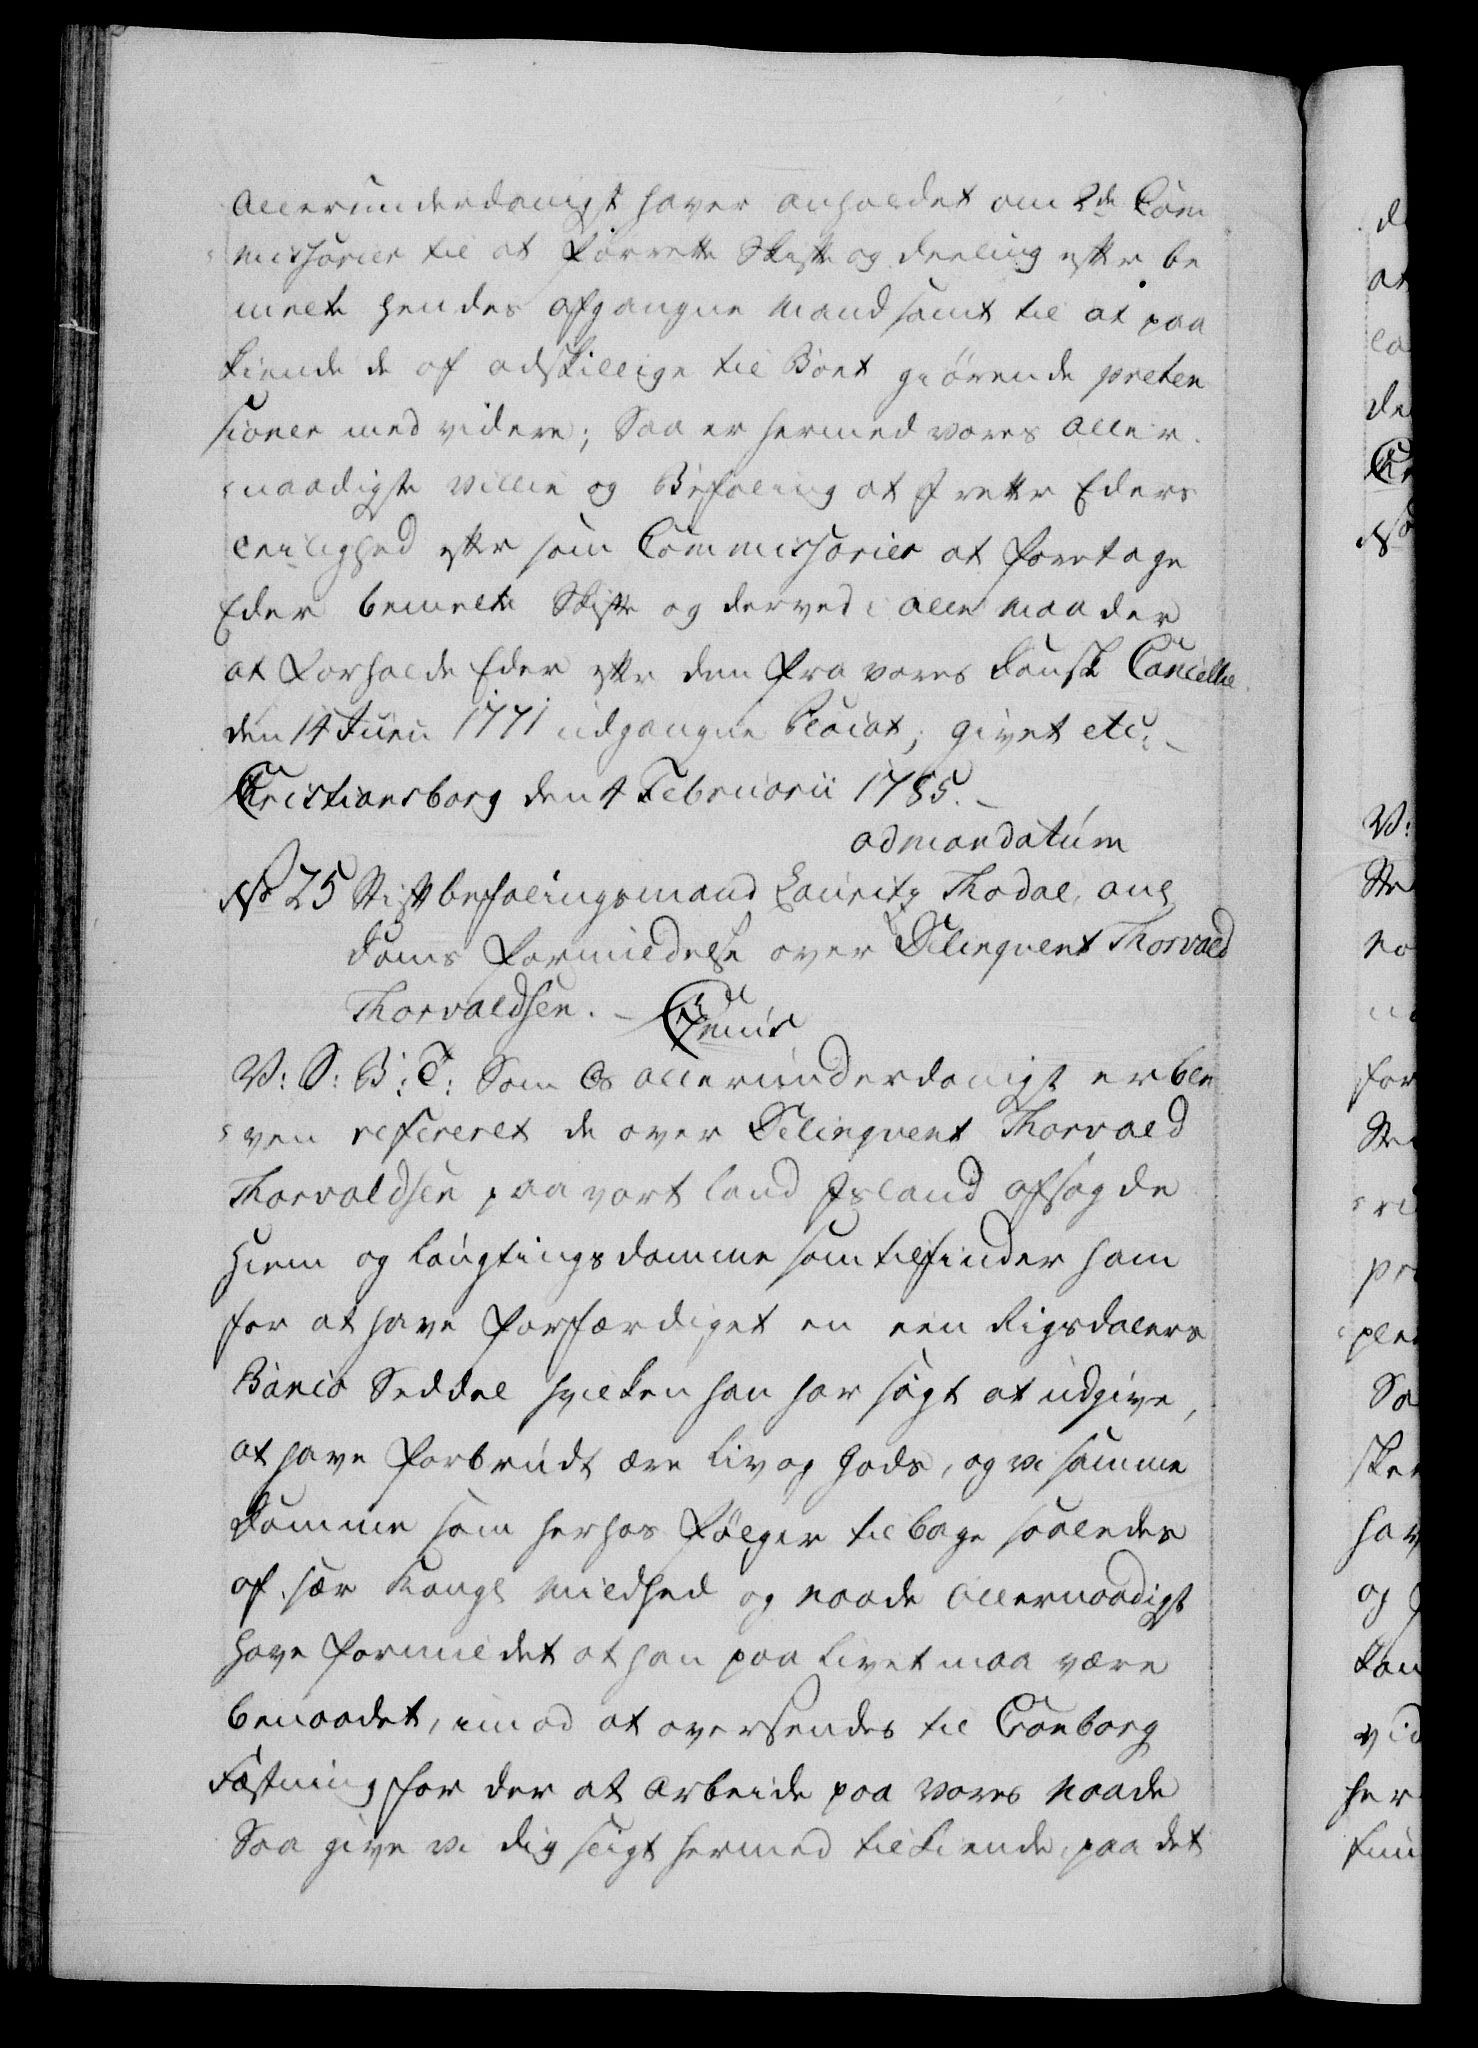 Allerunderdanigst haver anholdet om 2de Com
missarier til at forrette Skifte og deeling efter be
melte hendes afgangne Mand samt til at paa
kiende de af adskillige til Boet giörende preten
sioner med videre; Saa er hermed vores Aller-
naadigste Villie og Befaling at I rette Eders
Leilighed efter som Commissarier at foretage
Eder bemelte Skifte og derved i alle Maader
at Forholde Eder efter den fra vores danske Cancellie
den 14 Junii 1771 udgangne Placat; givet etc:
Christiansborg den 4 Februarii 1785.
ad mandatum
No 25 Stiftbefalingsmand Lauritz Thodal, ang
doms formildelse over Delinqvent Thorvald
Thorvaldsen.
V: S: B: T: Som Os allerunderdanigst er ble
ven refereret de over Delinqvent Thorvald
Thorvaldsen paa vort land Island afsagde
Hiem og Laugtingsdomme som tilfinder ham
for at have forfærdiget en een Rigsdalers
Banco Seddel hvilken han har sögt at udgive,
at have forbrudt ære liv og Gods, og vi samme
Domme som herhos fölger tilbage saaledes
af sær Kongl Mildhed og Naade Allernaadigst
have formildet at han paa Livet maa være
benaadet, imod at oversendes til Cronborg
Fæstning for der at Arbeide paa Vores Naade
Saa give vi dig sligt hermed tilkiende, paa det